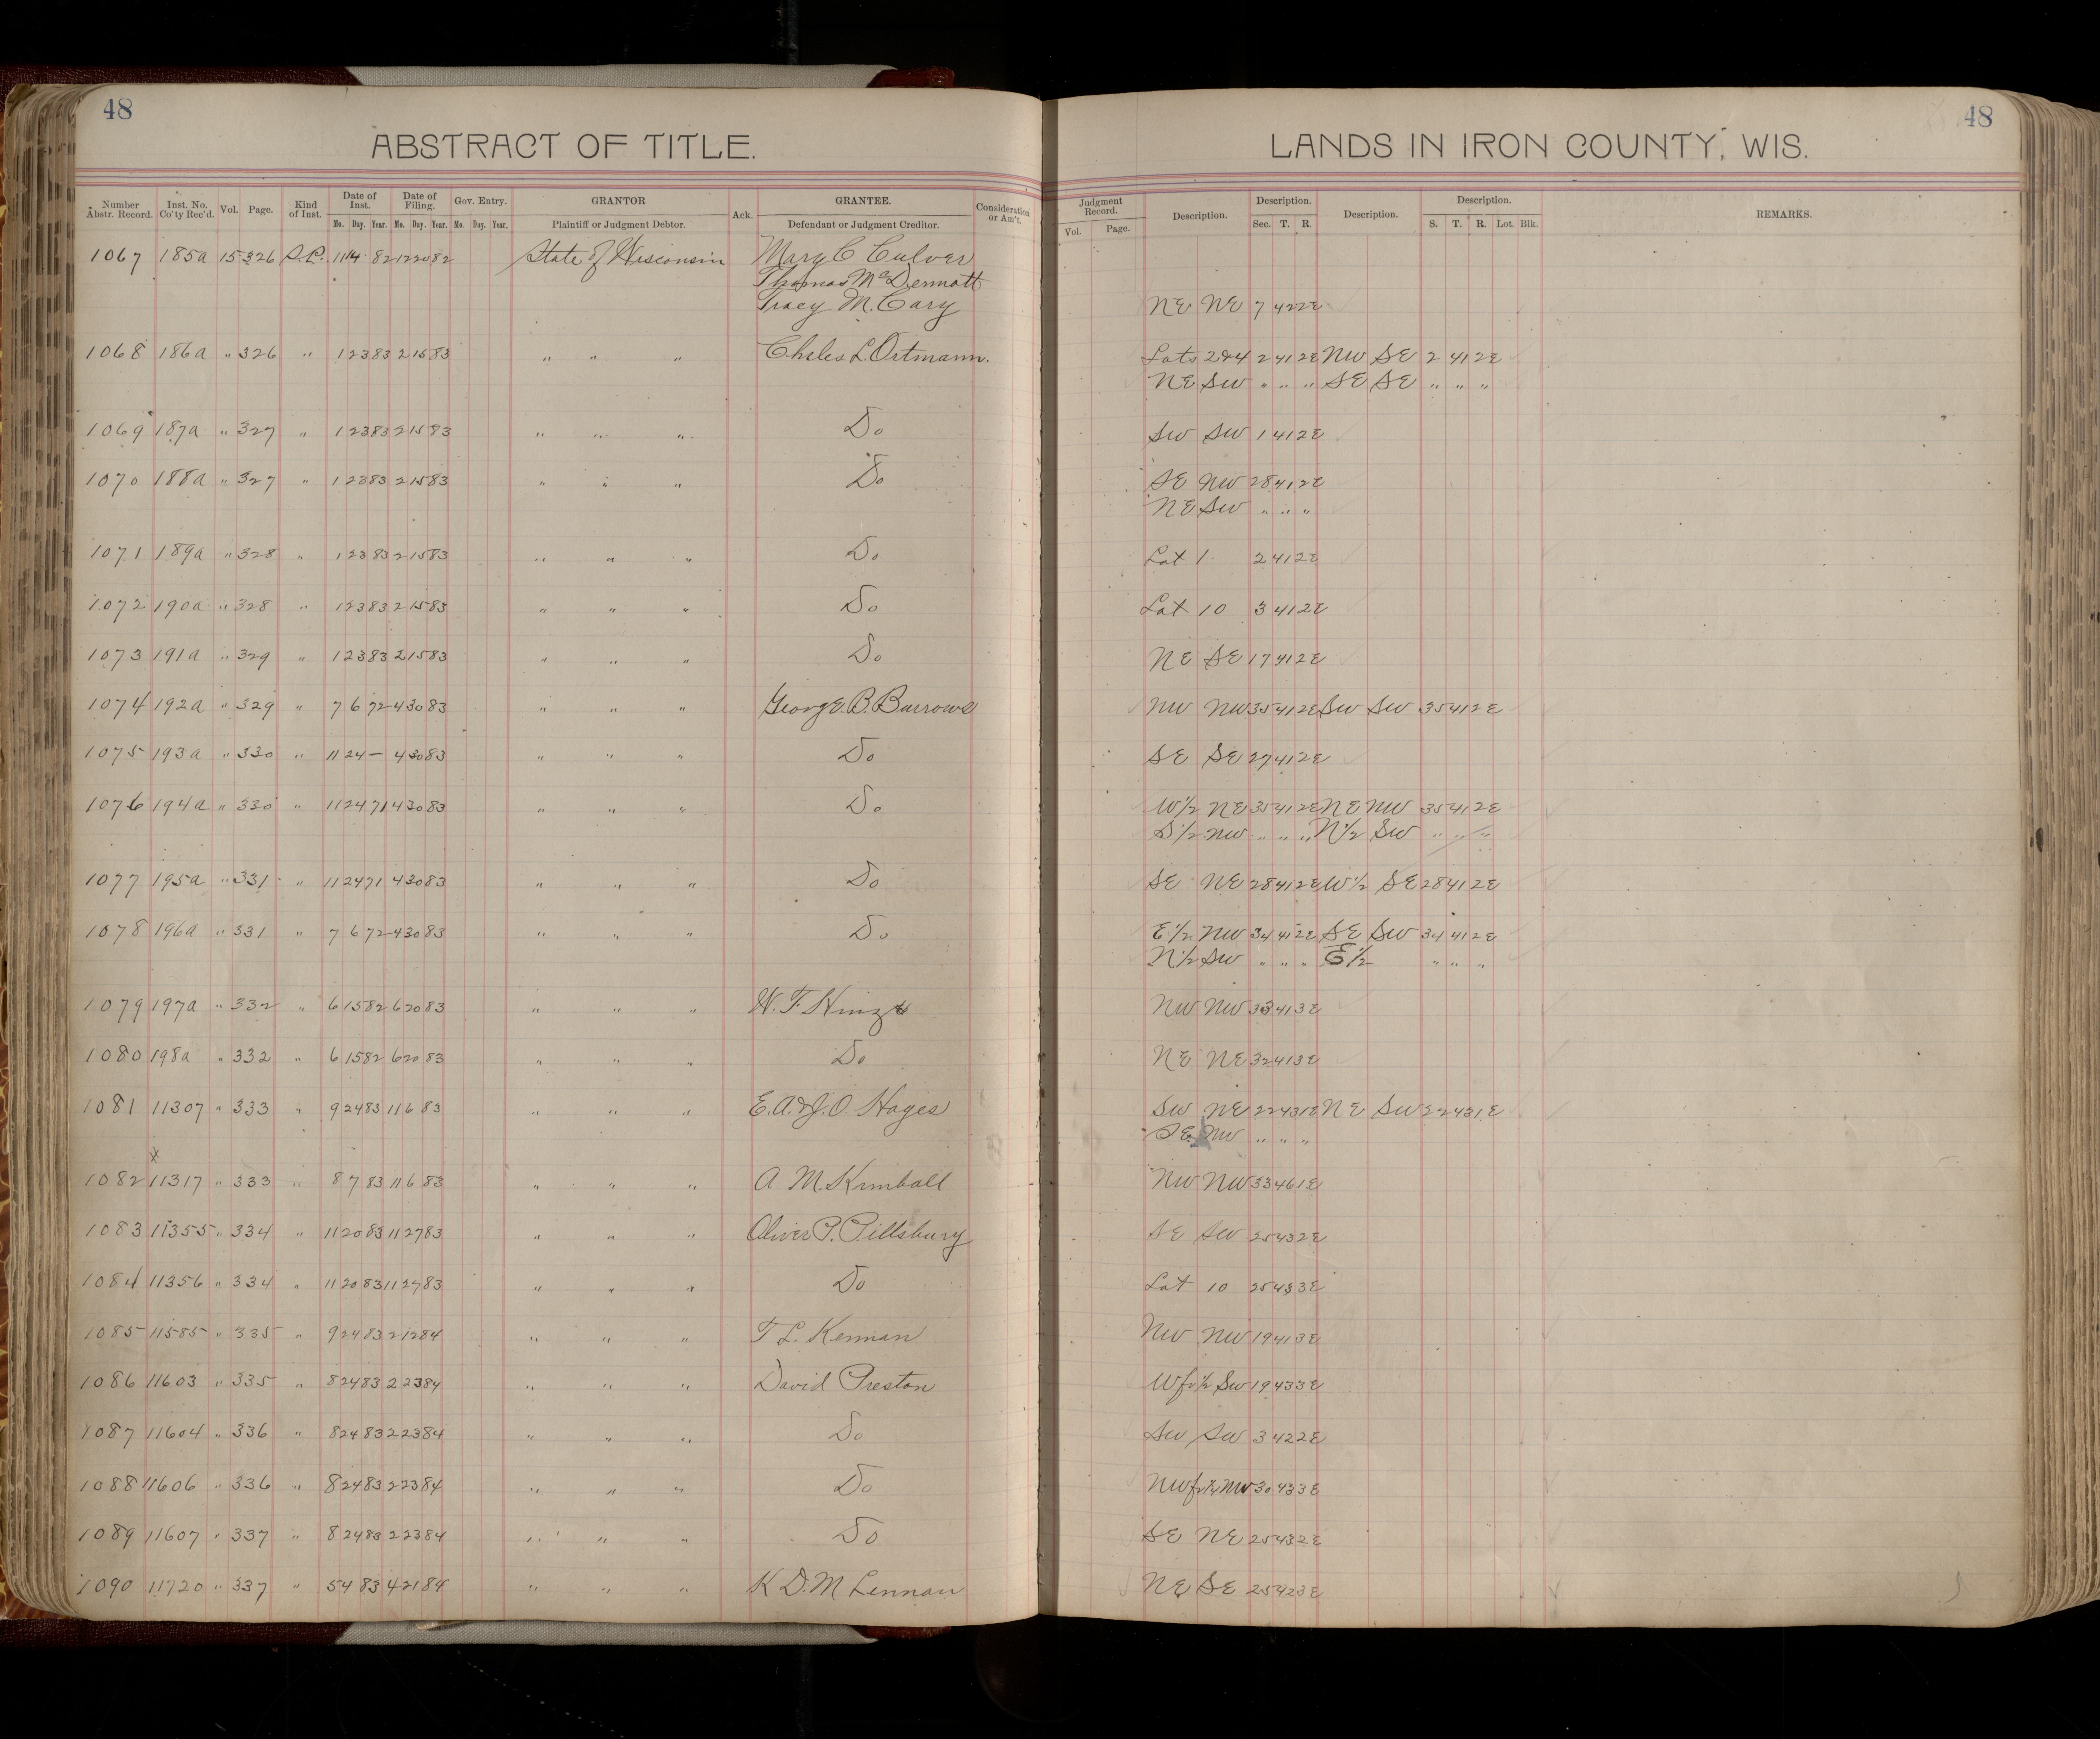 48
ABSTRACT OF TITLE.
Number Abstr. Record. Inst. No. Co'ty Rec'd. Vol. Page. Kind of Inst. Date of Inst. Date of Filing. Gov. Entry. GRANTOR Ack. GRANTEE. Consideration or Am't.
Mo. Day. Year. Mo. Day. Year. Mo. Day. Year. Plaintiff or Judgment Debtor. Defendant or Judgment Creditor.
1067 185a 15 326 S.P. 11 14 82 12 20 82 State of Wisconsin Mary C Culver
Thomas McDermott
Tracy M. Cary
1068 186a " 326 " 1 23 83 2 15 83 " " " Chsles L. Ortmann.
1069 187a " 327 " 1 23 83 2 15 83 " " " Do
1070 188a " 327 " 1 23 83 2 15 83 " " " Do
1071 189a " 328 " 1 23 83 2 15 83 " " " Do
1072 190a " 328 " 1 23 83 2 15 83 " " " Do
1073 191a " 329 " 1 23 83 2 15 83 " " " Do
1074 192a " 329 " 7 6 72 4 30 83 " " " George B. Burrows
1075 193a " 330 " 11 24 — 4 30 83 " " " Do
1076 194a " 330 " 11 24 71 4 30 83 " " " Do
1077 195a " 331 " 11 24 71 4 30 83 " " " Do
1078 196a " 331 " 7 6 72 4 30 83 " " " Do
1079 197a " 332 " 6 15 82 6 20 83 " " " W. F. Hinze
1080 198a " 332 " 6 15 82 6 20 83 " " " Do
1081 11307 " 333 " 9 24 83 11 6 83 " " " E.A. & J.O. Hayes
x
1082 11317 " 333 " 8 7 83 11 6 83 " " " A M. Kimball
1083 11355 " 334 " 11 20 83 11 27 83 " " " Oliver P. Pillsbury
1084 11356 " 334 " 11 20 83 11 27 83 " " " Do
1085 11585 " 335 " 9 24 83 2 12 84 " " " T L. Kennan
1086 11603 " 335 " 8 24 83 2 23 84 " " " David Preston
1087 11604 " 336 " 8 24 83 2 23 84 " " " Do
1088 11606 " 336 " 8 24 83 2 23 84 " " " Do
1089 11607 " 337 " 8 24 83 2 23 84 " " " Do
1090 11720 " 337 " 5 4 83 4 21 84 " " " K D. M Lennan
48
LANDS IN IRON COUNTY, WIS.
Judgment Record. Description. Description. Description. Description. REMARKS.
Vol. Page. Sec. T. R. S. T. R. Lot. Blk.
NE NE 7 42 2E
Lots 2&4 2 41 2E NW SE 2 41 2E
NE SW " " " SE SE " " "
SW SW 1 41 2E
SE NW 28 41 2E
NE SW " " "
Lot 1 2 41 2E
Lot 10 3 41 2E
NE SE 17 41 2E
NW NW 35 41 2E SW SW 35 41 2E
SE SE 27 41 2E
W½ NE 35 41 2E NE NW 35 41 2E
S½ NW " " " N½ SW " " "
SE NE 28 41 2E W½ SE 28 41 2E
E½ NW 34 41 2E SE SW 34 41 2E
N½ SW " " " E½ " " "
NW NW 33 41 3E
NE NE 32 41 3E
SW NE 22 43 1E NE SW 22 43 1E
SE NW " " "
NW NW 33 46 1E
SE SW 25 43 2E
Lot 10 25 43 3E
NW NW 19 41 3E
W fr ½ SW 19 43 3E
SW SW 3 42 2E
NW fr ¼ NW 30 43 3E
SE NE 25 43 2E
NE SE 25 42 3E